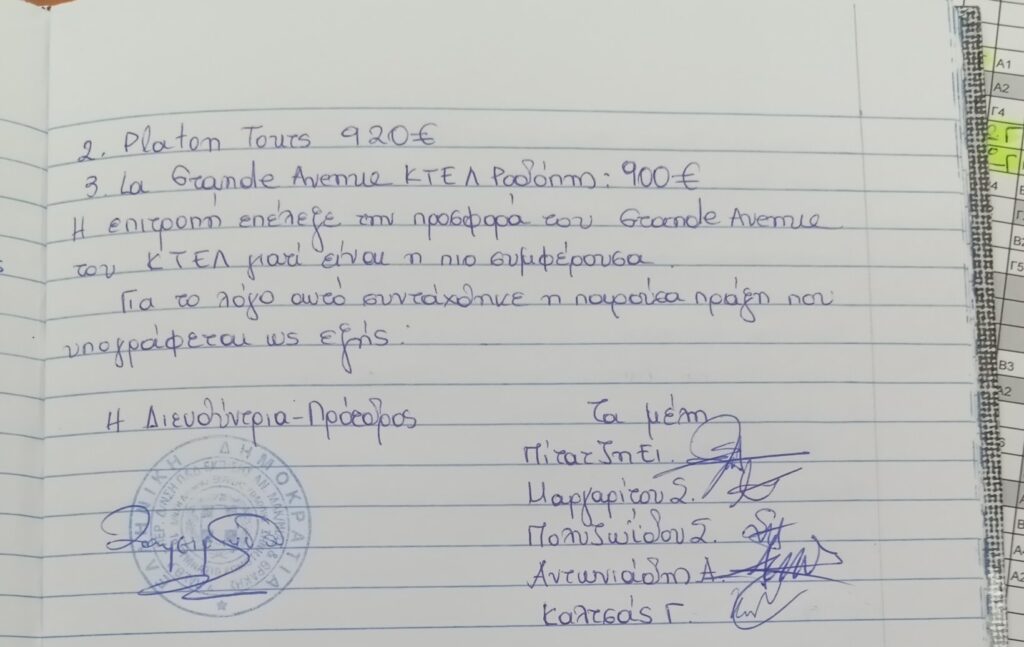 2. Platon Tours 920€
3. La Grande Avenue ΚΤΕΛ Ροδόπη: 900€
Η επιτροπή επέλεξε την προσφορά του Grande Avenue
του ΚΤΕΛ γιατί είναι η πιο συμφέρουσα.
Για το λόγο αυτό συντάχθηκε η παρούσα πράξη που
υπογράφεται ως εξής:
Η Διευθύντρια-Πρόεδρος
Τα μέλη
Μαργαρίτου Σ.
Πολυζωίδου Σ.
Αντωνιάδη Α.
Καλτσάς Γ.
ΔΗΜΟΚΡΑΤΙΑ
Α1
Α2
Γ4
Β3